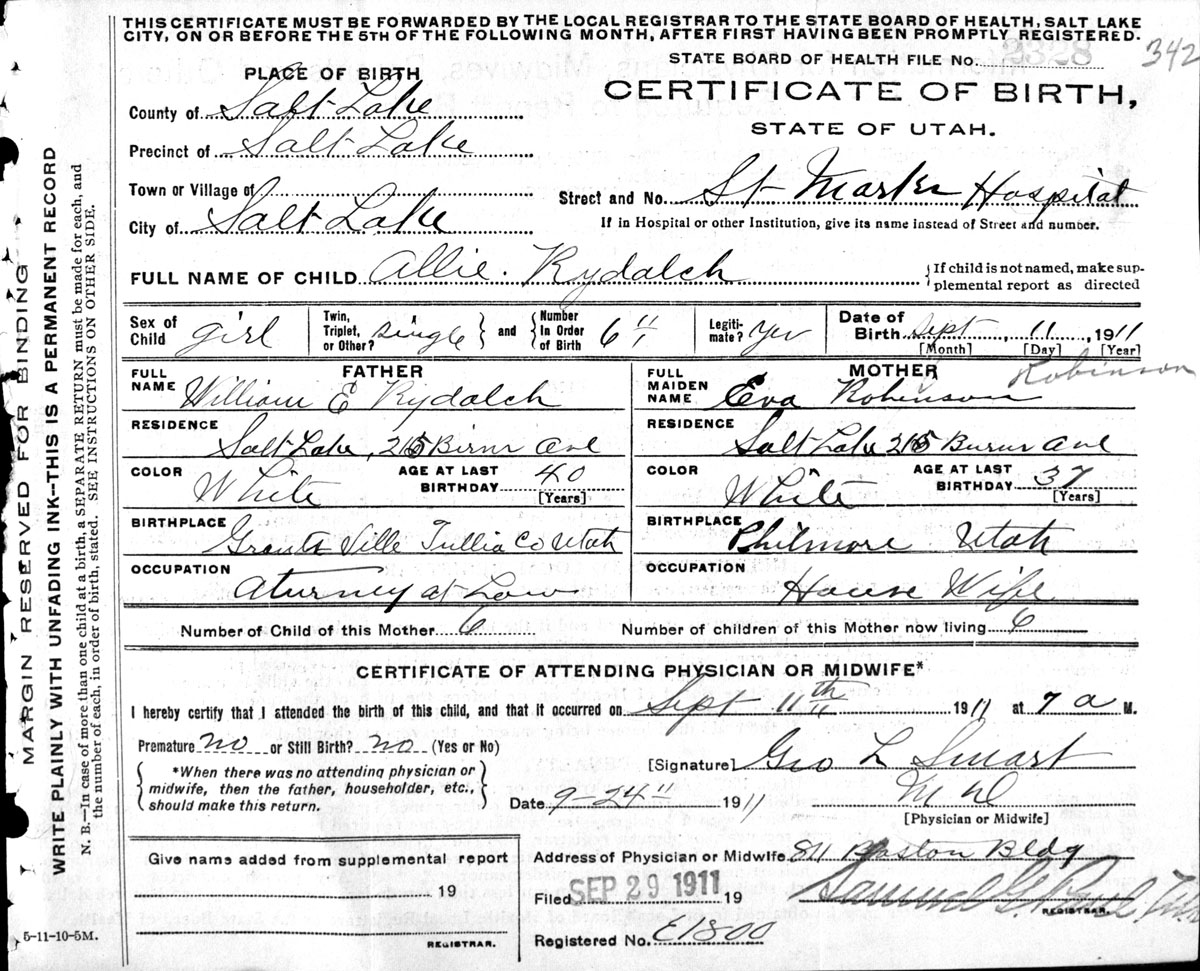 THIS CERTIFICATE MUST BE FORWARDED BY THE LOCAL REGISTRAR TO THE STATE BOARD OF HEALTH, SALT LAKE
CITY, ON OR BEFORE THE 5TH OF THE FOLLOWING MONTH, AFTER FIRST HAVING BEEN PROMPTLY REGISTERED.
342
STATE BOARD OF HEALTH FILE No. 3328
PLACE OF BIRTH
CERTIFICATE OF BIRTH,
STATE OF UTAH.
County of Salt Lake
Precinct of Salt Lake
Town or Village of
Street and No. St Marks Hospital
City of Salt Lake
If in Hospital or other Institution, give its name instead of Street and number.
FULL NAME OF CHILD Allie. Rydalch
{If child is not named, make sup-
plemental report as directed
Sex of Child girl Twin, Triplet, or Other? single } and { Number In Order of Birth 6" Legiti-mate? Yes Date of Birth Sept, 11, 1911
[Month] [Day] [Year]
FATHER MOTHER Robinson
FULL NAME William E Rydalch FULL MAIDEN NAME Eva Robinson
RESIDENCE Salt Lake, 215 Ave RESIDENCE Salt Lake 215 Ave
COLOR White AGE AT LAST BIRTHDAY 40 [Years] COLOR White AGE AT LAST BIRTHDAY 37 [Years]
BIRTHPLACE Grants Ville Tullia Co Utah BIRTHPLACE Philmore Utah
OCCUPATION Aturney at Law OCCUPATION House Wife
Number of Child of this Mother 6 Number of children of this Mother now living 6
CERTIFICATE OF ATTENDING PHYSICIAN OR MIDWIFE*
I hereby certify that I attended the birth of this child, and that it occurred on Sept 11th 1911 at 7 a M.
Premature no or Still Birth? no (Yes or No)
{ *When there was no attending physician or
midwife, then the father, householder, etc.,
should make this return. }
[Signature] Geo L Smart
M D
Date 9-24" 1911 [Physician or Midwife]
Give name added from supplemental report
Address of Physician or Midwife 811 Boston Bldg
19
Filed SEP 29 1911 19
REGISTRAR.
Registered No. E1800
REGISTRAR.
5-11-10-5M.
MARGIN RESERVED FOR BINDING
WRITE PLAINLY WITH UNFADING INK--THIS IS A PERMANENT RECORD
N. B.—In case of more than one child at a birth, a SEPARATE RETURN must be made for each, and
the number of each, in order of birth, stated. SEE INSTRUCTIONS ON OTHER SIDE.